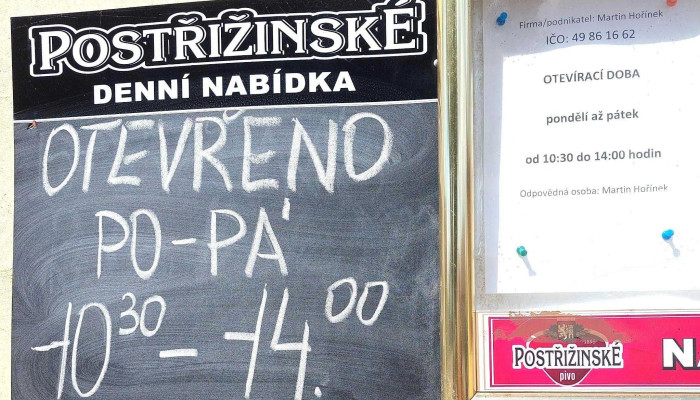 POSTŘIŽINSKÉ
DENNÍ NABÍDKA
OTEVŘENO
PO-PÁ
10 30 - 14. 00
Firma/podnikatel: Martin Hořínek
IČO: 49 86 16 62
OTEVÍRACÍ DOBA
pondělí až pátek
od 10:30 do 14:00 hodin
Odpovědná osoba: Martin Hořínek
POSTŘIŽINSKÉ
pivo